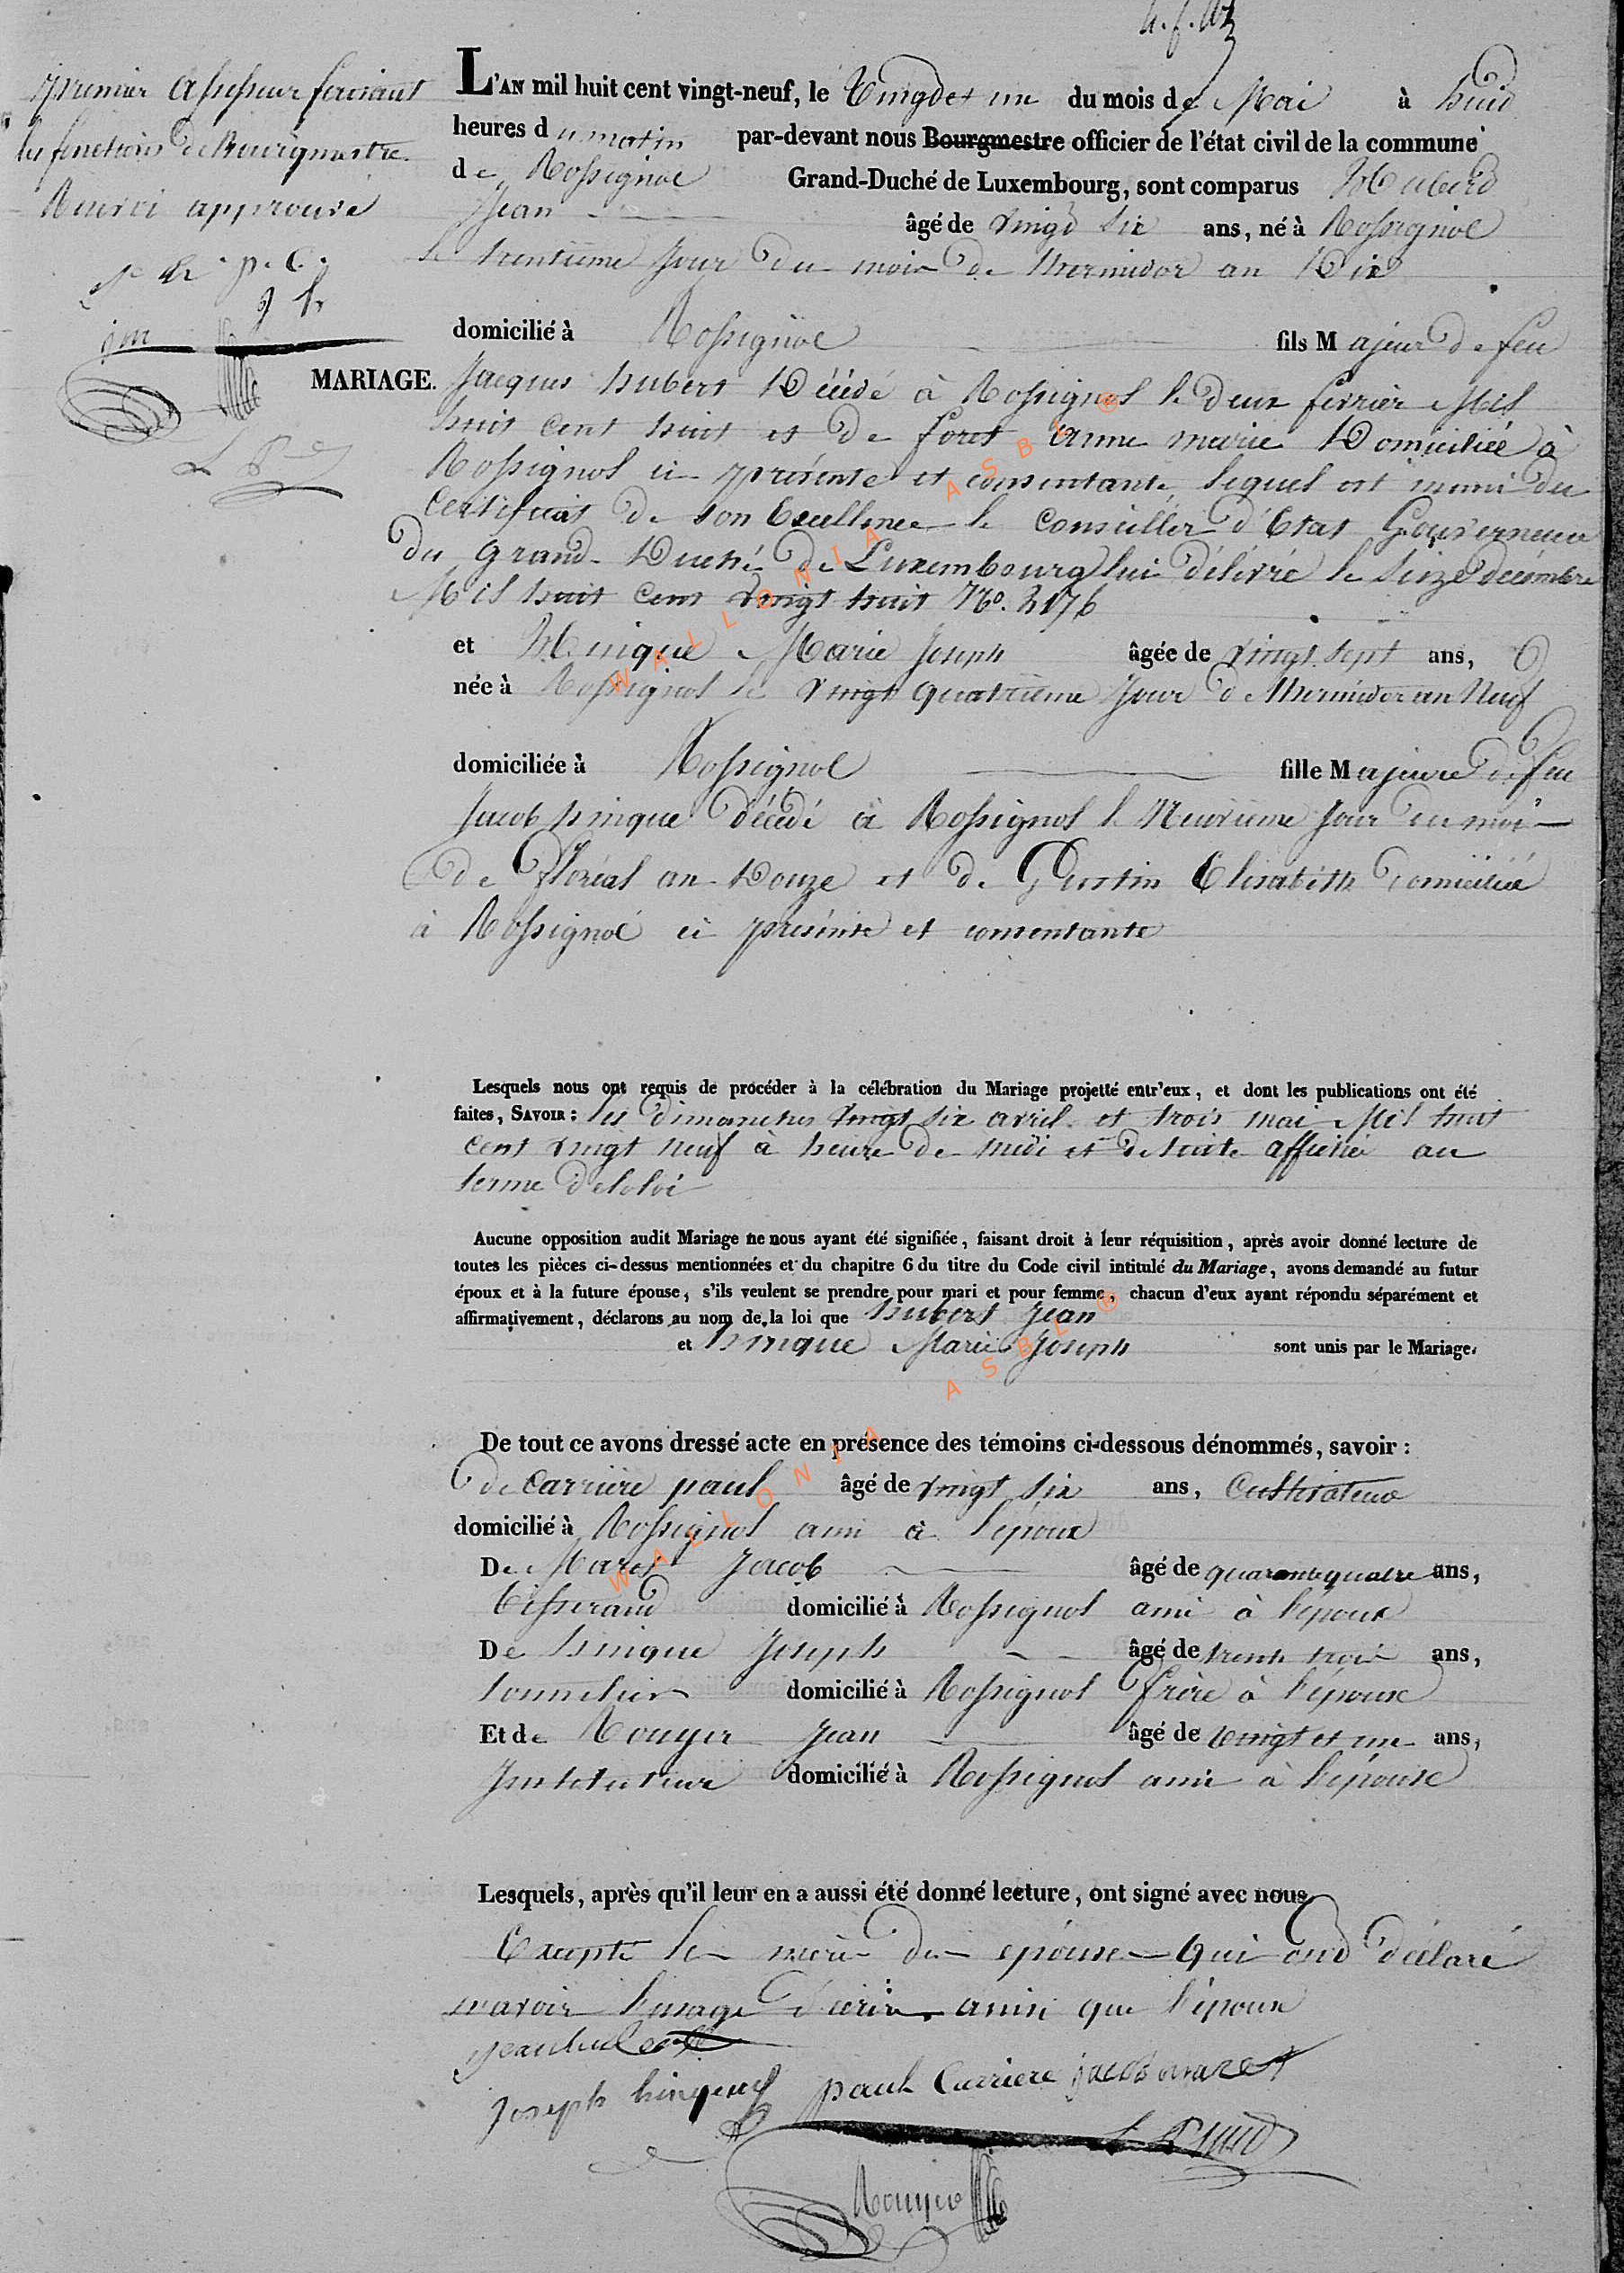 premier assesseur faisant
les fonctions de Bourgmestre.
Renvoi approuvé
j. h. p. C.
j h
jm
L'AN mil huit cent vingt-neuf, le Vingt et un du mois de Mai à huit
heures du matin par-devant nous Bourgmestre officier de l'état civil de la commune
de Rossignol Grand-Duché de Luxembourg, sont comparus Hubert
Jean âgé de vingt six ans, né à Rossignol
le trentième jour du mois de thermidor an Dix
domicilié à Rossignol fils Majeur de feu
MARIAGE.
Jacques hubert Décédé à Rossignol le deux fevrier Mil
huit cent huit et de foret anne marie Domiciliée à
Rossignol ci présente et consentante lequel est muni du
Certificat de son Excellence le Conseiller d'Etat Gouverneur
du Grand-Duché de Luxembourg lui délivré le Seize décembre
Mil huit cent vingt huit No. 2176
et Hinque Marie Joseph âgée de vingt sept ans,
née à Rossignol le vingt quatrième Jour de thermidor an Neuf
domiciliée à Rossignol fille Majeure de feu
Jacob hinque décédé à Rossignol le Neuvième Jour du mois
de floréal an Douze et de Gustin Elisabeth domiciliée
à Rossignol ci présente et consentante
Lesquels nous ont requis de procéder à la célébration du Mariage projetté entr'eux, et dont les publications ont été
faites, SAVOIR : les dimanches vingt six avril et trois mai Mil huit
cent vingt neuf à heure de midi et de suite affiché au
terme de la loi
Aucune opposition audit Mariage ne nous ayant été signifiée, faisant droit à leur réquisition, après avoir donné lecture de
toutes les pièces ci-dessus mentionnées et du chapitre 6 du titre du Code civil intitulé du Mariage, avons demandé au futur
époux et à la future épouse, s'ils veulent se prendre pour mari et pour femme, chacun d'eux ayant répondu séparément et
affirmativement, déclarons au nom de la loi que hubert Jean
et hinque Marie Joseph sont unis par le Mariage.
De tout ce avons dressé acte en présence des témoins ci-dessous dénommés, savoir :
de Carrière paul âgé de vingt six ans, Cultivateur
domicilié à Rossignol ami à l'époux
De Maret Jacob âgé de quarante quatre ans,
tisserand domicilié à Rossignol ami à l'époux
De hinque Joseph âgé de trente trois ans,
tonnelier domicilié à Rossignol frère à l'épouse
Et de Rouyer Jean âgé de vingt et un ans,
Instituteur domicilié à Rossignol ami à l'épouse
Lesquels, après qu'il leur en a aussi été donné lecture, ont signé avec nous
Excepté les mères des epouse qui ont déclaré
n'avoir l'usage d'écrire ainsi que l'épouse
jean hubert
joseph hinque paul Carriere jacob maret
Rouyer
WALLONIA ASBL ®
WALLONIA ASBL ®